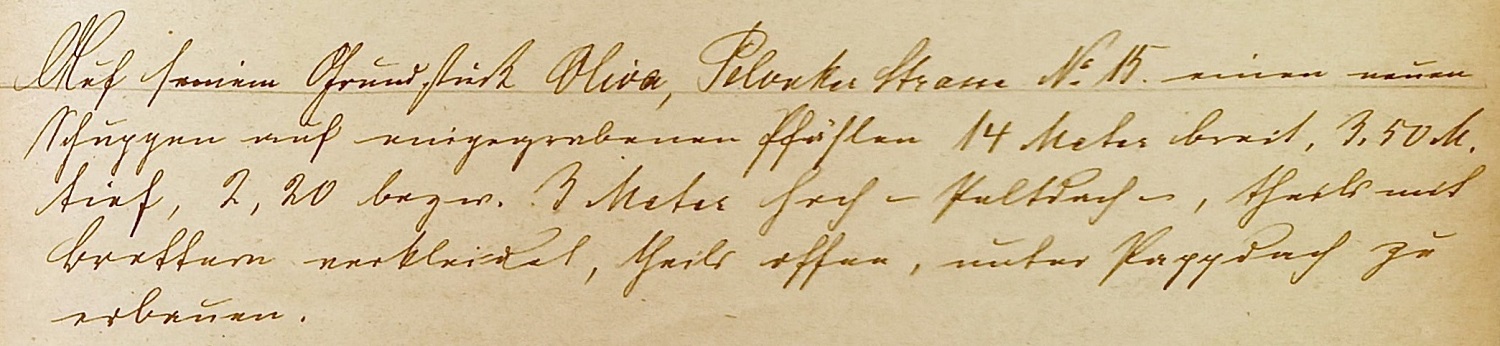 Auf seinem Grundstück Oliva, Pelonker Strasse No 15. einen neuen
Schuppen auf eingegrabenen Pfählen 14 Meter breit, 3,50 M.
tief, 2,20 bezw. 3 Meter hoch – Pultdach –, theils mit
Brettern verkleidet, theils offen, unter Pappdach zu
erbauen.